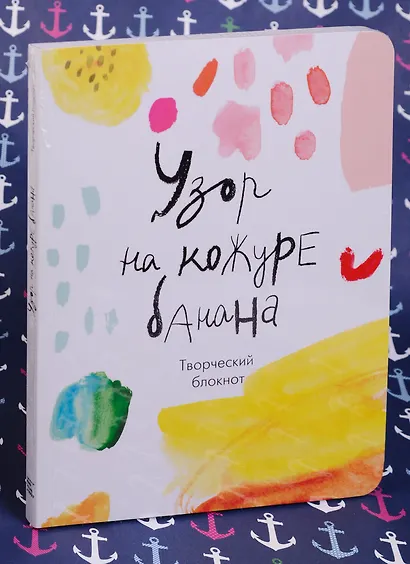 Узор
на кожуре
банана
Творческий
блокнот
Узор на кожуре банана